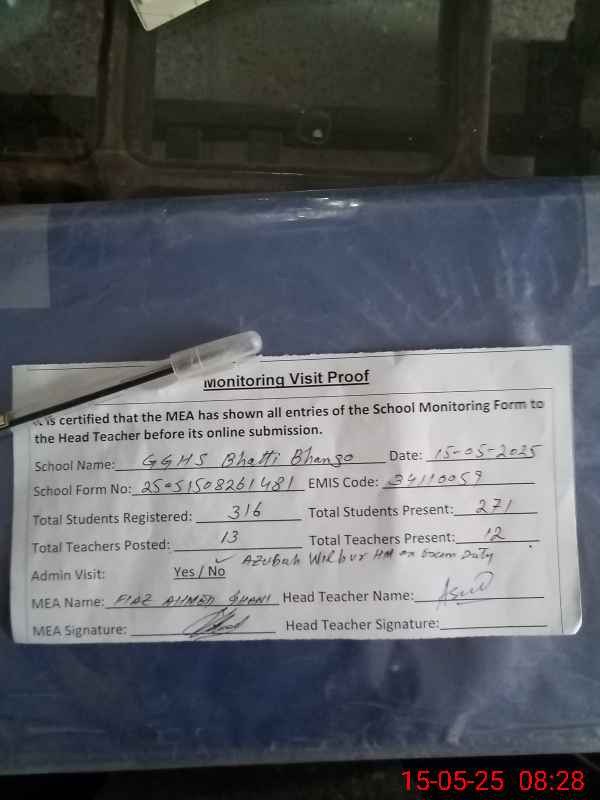 Monitoring Visit Proof
It is certified that the MEA has shown all entries of the School Monitoring Form to
the Head Teacher before its online submission.
School Name: GGHS Bhatti Bhango Date: 15-05-2025
School Form No: 25-51508261481 EMIS Code: 34110059
Total Students Registered: 316 Total Students Present: 271
Total Teachers Posted: 13 Total Teachers Present: 12
Azubah Wilbur HM on Exam Duty
Admin Visit: Yes / No ✓
MEA Name: FIAZ AHMED GHANI Head Teacher Name:
MEA Signature: Head Teacher Signature:
15-05-25 08:28